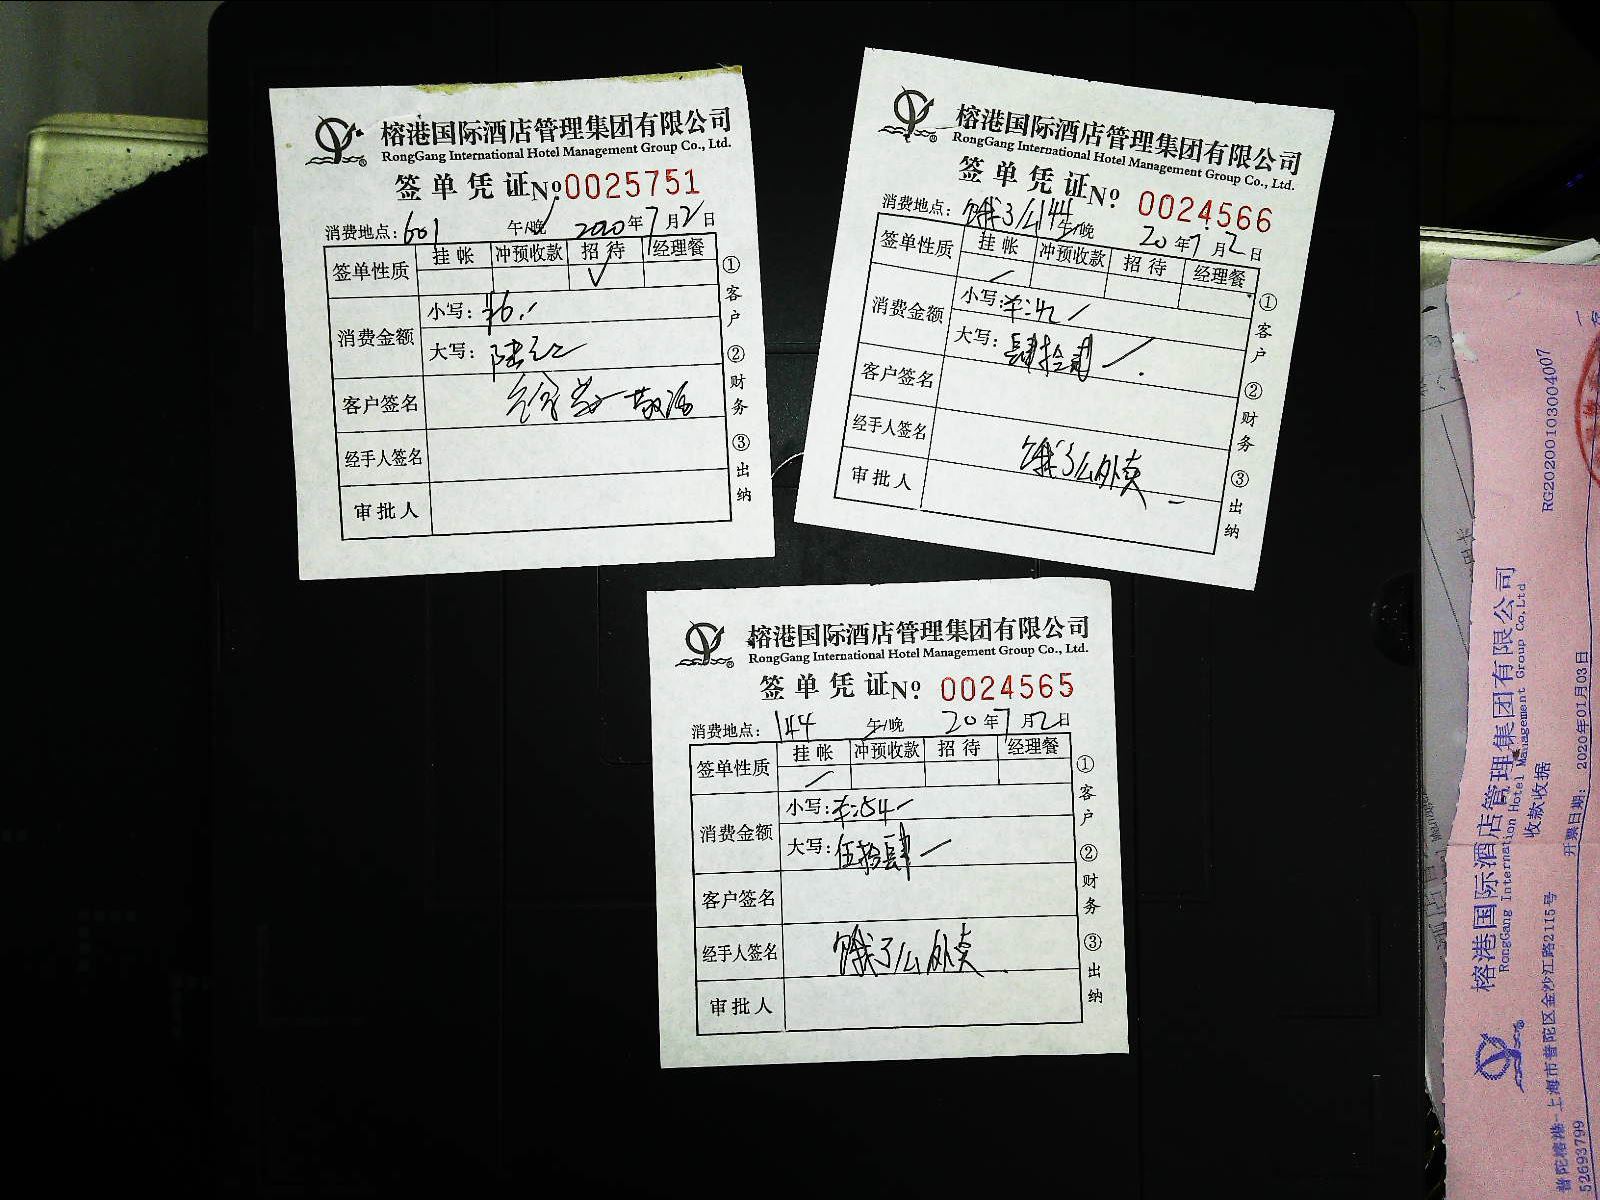 榕港国际酒店管理集团有限公司
RongGang International Hotel Management Group Co., Ltd.
签单凭证№0025751
消费地点:601 午/晚 2020年7月2日
签单性质 挂帐 冲预收款 招待 经理餐
✓
消费金额 小写:¥6.-
大写:陆元
客户签名
经手人签名
审批人
①客户 ②财务 ③出纳
榕港国际酒店管理集团有限公司
RongGang International Hotel Management Group Co., Ltd.
签单凭证№ 0024566
消费地点:饿了么144 午/晚 20年7月2日
签单性质 挂帐 冲预收款 招待 经理餐
消费金额 小写:42
大写:肆拾贰
客户签名
经手人签名 饿了么外卖
审批人
①客户 ②财务 ③出纳
榕港国际酒店管理集团有限公司
RongGang International Hotel Management Group Co., Ltd.
签单凭证№ 0024565
消费地点:144 午/晚 20年7月2日
签单性质 挂帐 冲预收款 招待 经理餐
消费金额 小写:54
大写:伍拾肆
客户签名
经手人签名 饿了么外卖
审批人
①客户 ②财务 ③出纳
榕港国际酒店管理集团有限公司
RongGang International Hotel Management Group Co.,Ltd
收款收据
RG20200103004007
开票日期: 2020年01月03日
普陀榕港-上海市普陀区金沙江路2115号
52693799